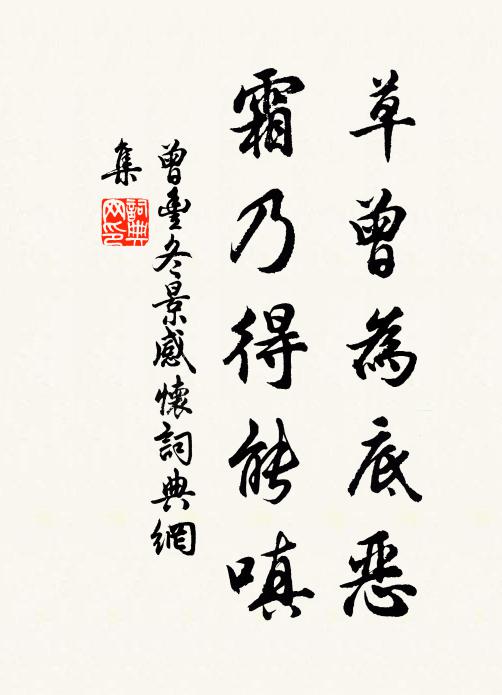 草曾為底惡
霜乃得能嗔
曾豊冬景感懷詞典網
集
詞典網印